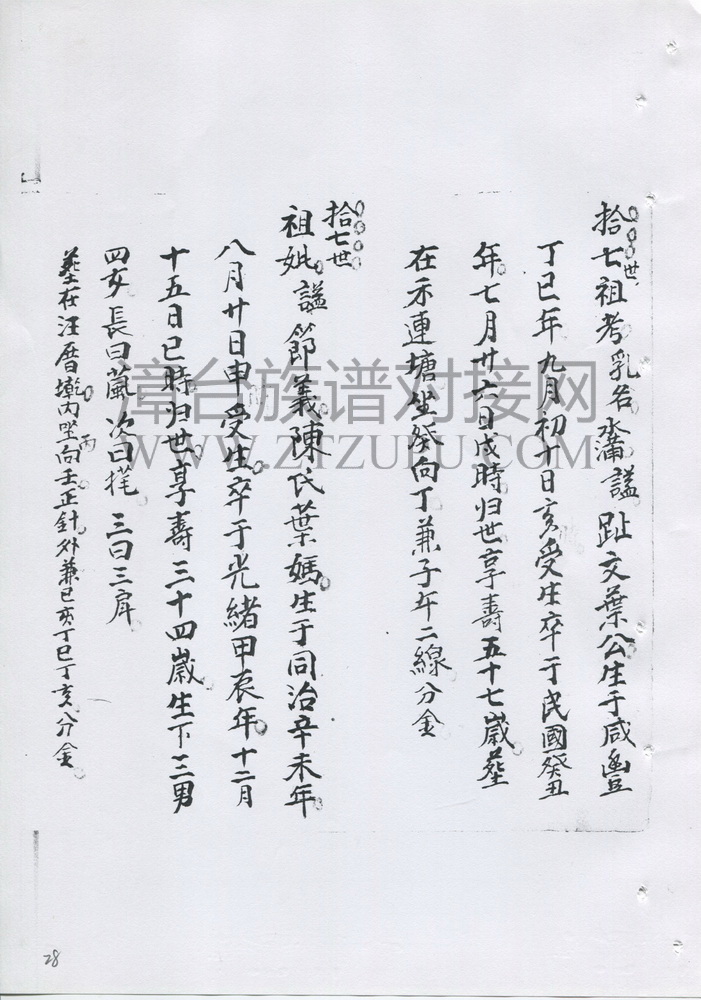 拾七世祖考乳名水蒲謚趾文葉公生于咸豊
丁巳年九月初十日亥受生卒于民國癸丑
年七月廿六日戌時归世享壽五十七歲塟
在示連塘坐癸向丁兼子午二線分金
拾七世
祖妣謚節義陳氏葉媽生于同治辛未年
八月廿日申受生卒于光緒甲辰年十二月
十五日巳時归世享壽三十四歲生下三男
四女長曰蘭次曰 三曰三
塟在汪厝 内坐丙向壬正針外兼巳亥丁巳丁亥分金
漳台族谱对接网
WWW.ZTZUPU.COM
28